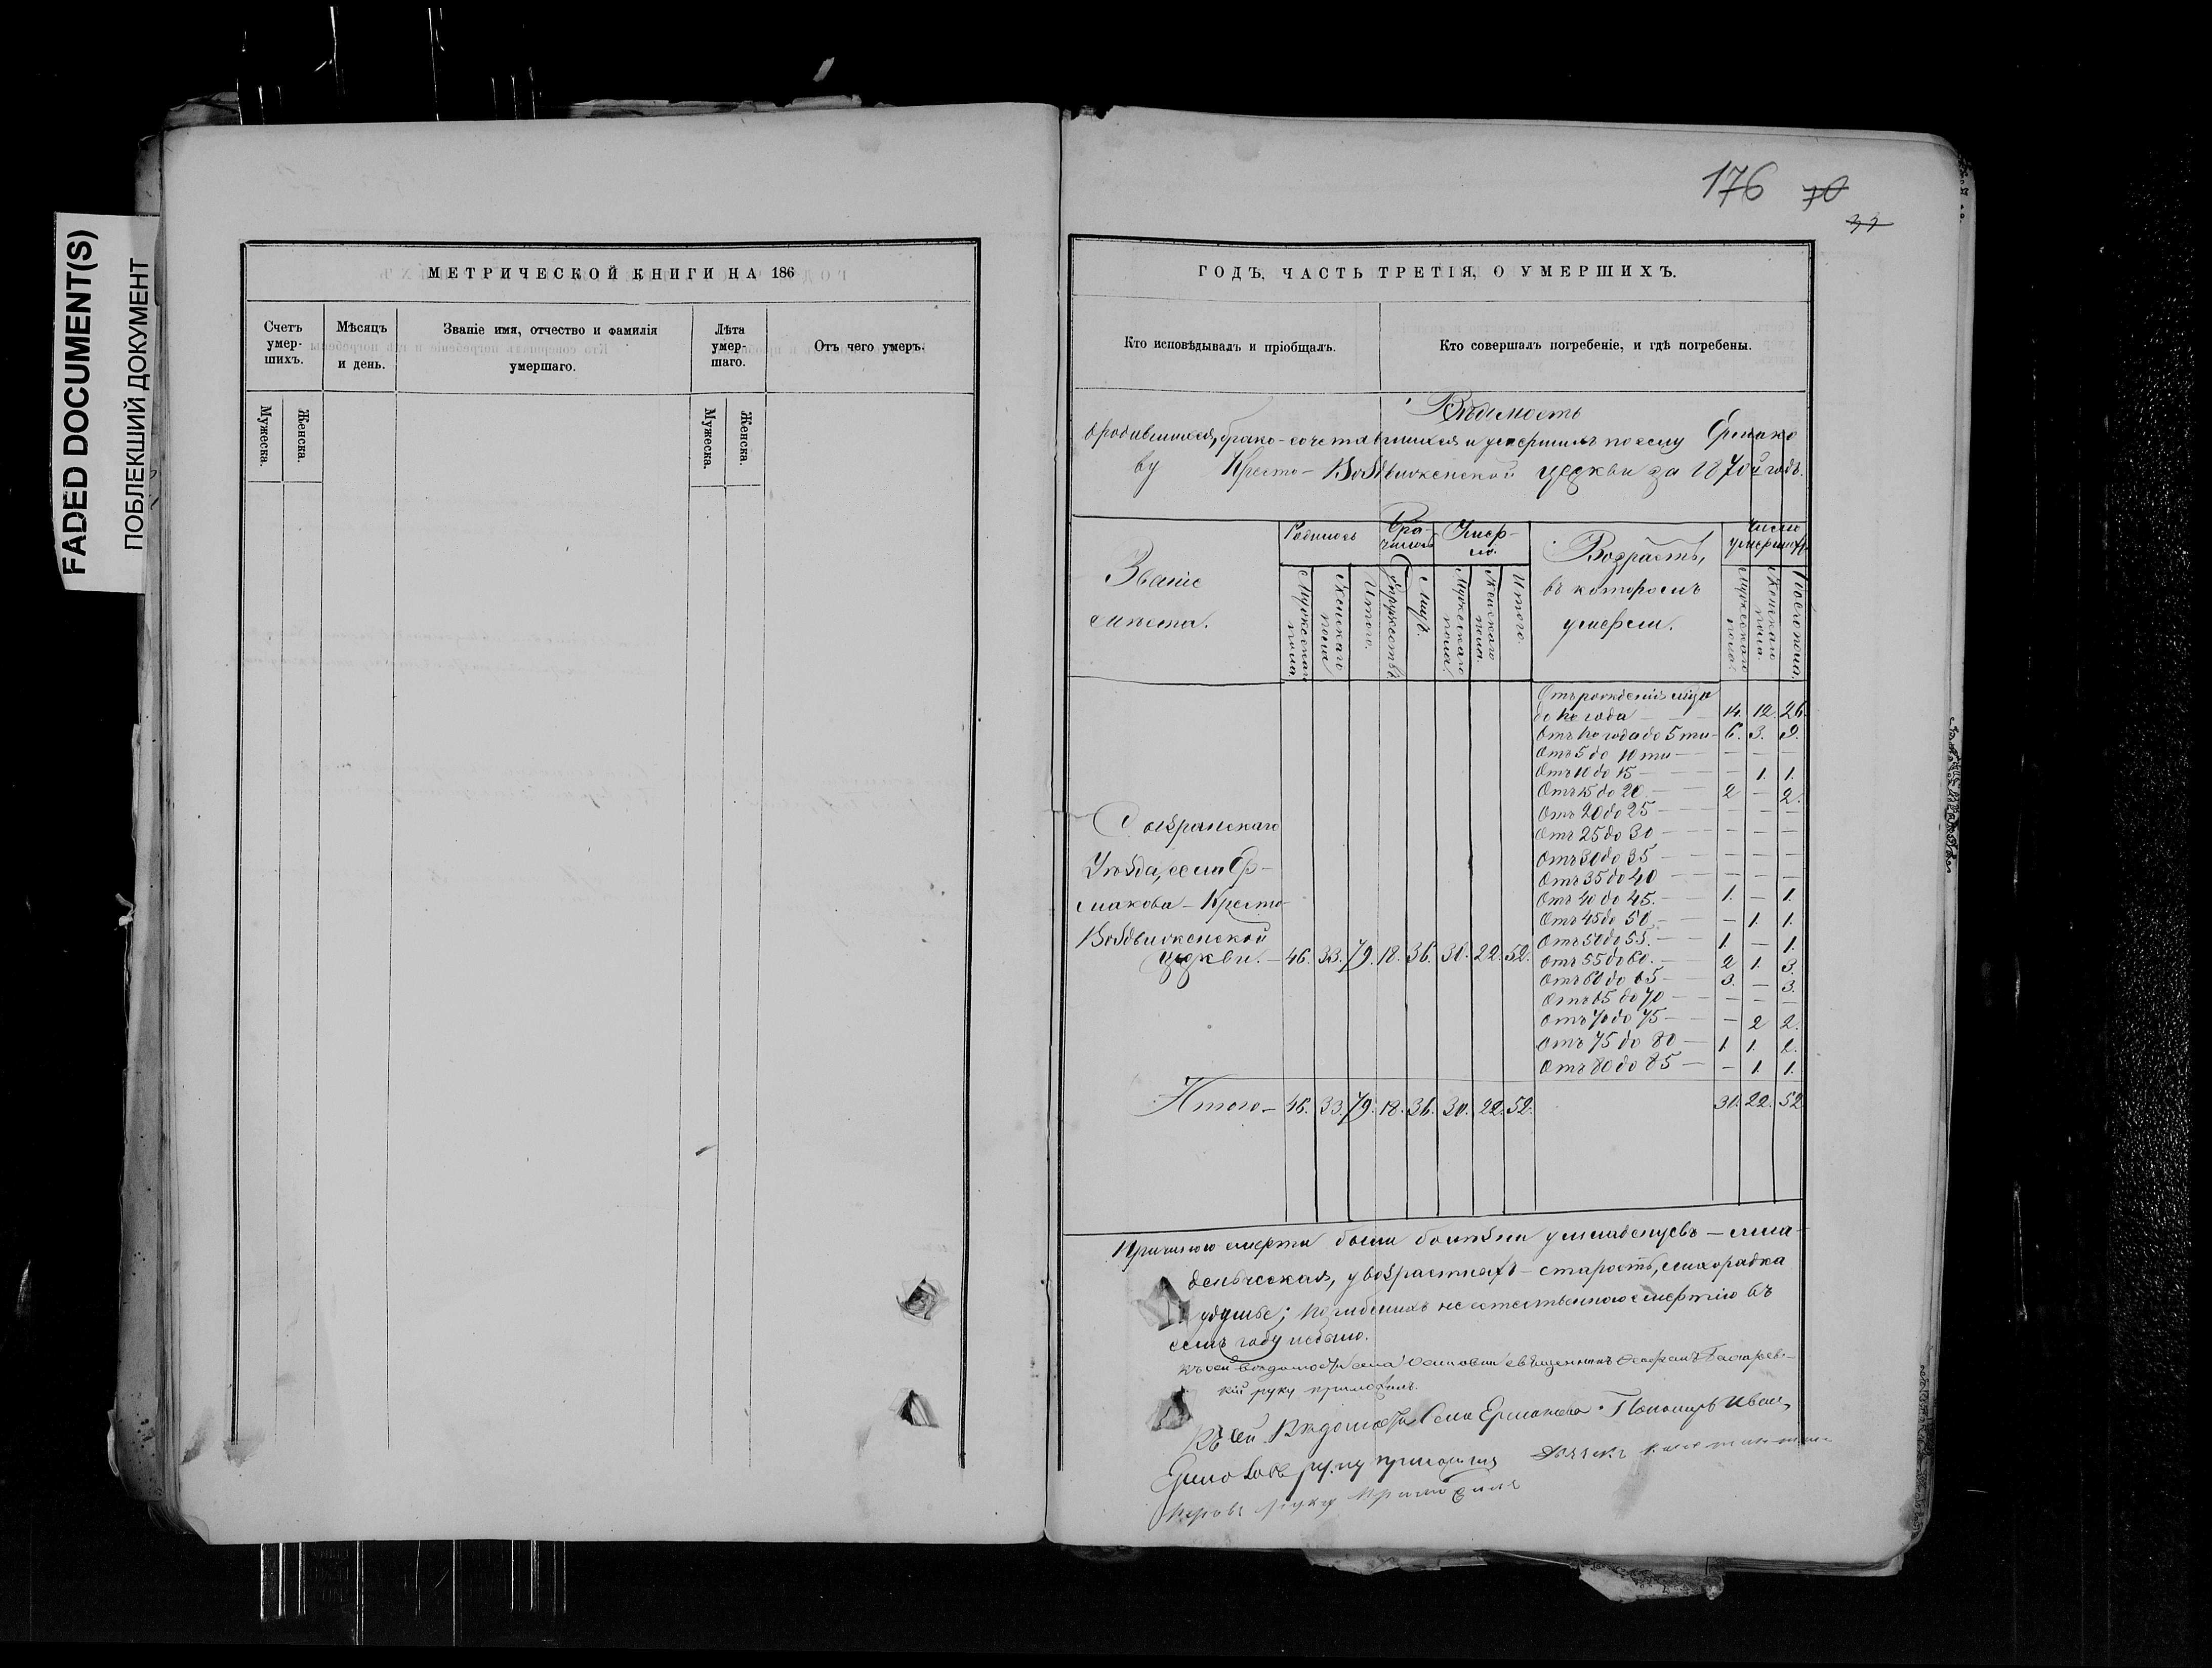 FADED DOCUMENT(S)
ПОБЛЕКШИЙ ДОКУМЕНТ
МЕТРИЧЕСКОЙ КНИГИ НА 186
Счетъ умер-шихъ.
Мѣсяцъ и день.
Званіе имя, отчество и фамилія умершаго.
Лѣта умер-шаго.
Отъ чего умеръ.
Мужеска.
Женска.
Мужеска.
Женска.
176 70
ГОДЪ, ЧАСТЬ ТРЕТІЯ, О УМЕРШИХЪ.
Кто исповѣдывалъ и пріобщалъ.
Кто совершалъ погребеніе, и гдѣ погребены.
Вѣдомость
о родившихся, брако-сочетавшихся и умершихъ по селу Ермако
ву Кресто-Воздвиженской церкви за 1870й годъ.
Званіе
мѣста.
Родилось
Мужескаго пола.
Женскаго пола
Итого.
Бра-чилось
Супружествъ
Лицъ.
Умер-ло.
Мужескаго пола.
Женскаго пола.
Итого.
Возрастъ,
въ которомъ
умерли.
Число умершихъ
Мужескаго пола.
Женскаго пола.
Обоего пола.
Отъ рожденія
до 1го года — 14. 12. 26.
Отъ 1го года до 5ти — 6. 3. 9.
Отъ 5 до 10ти — — — —
Отъ 10 до 15 — — 1. 1.
Отъ 15 до 20. — 2 — 2.
Отъ 20 до 25 — — — —
Отъ 25 до 30 — — — —
Отъ 30 до 35 — — — —
Отъ 35 до 40 — — — —
Отъ 40 до 45. — 1. — 1.
Отъ 45 до 50. — — 1. 1.
Отъ 50 до 55. — 1. — 1.
Отъ 55 до 60. — 2 1. 3.
Отъ 60 до 65 — 3. — 3.
Отъ 65 до 70 — — — —
Отъ 70 до 75 — — 2 2.
Отъ 75 до 80 — 1. 1. 2.
Отъ 80 до 85 — — 1. 1.
Сызранскаго
Уѣзда, села Ер-
макова-Кресто-
Воздвиженской
церкви. — 46. 33. 79. 18. 36. 30. 22. 52.
Итого — 46. 33. 79. 18. 36. 30. 22. 52. 30. 22. 52
Причиною смерти были болѣзни у младенцевъ — мла-
денческая, у возрастныхъ — старость, лихорадка
удушье; погибшихъ не естественною смертію въ
семъ году небыло.
Къ сей вѣдомости села священникъ
кій руку приложилъ.
Къ сей Вѣдомости Села Ермакова Пономарь Иван
Ермоловъ руку приложилъ Дьячекъ
руку приложилъ